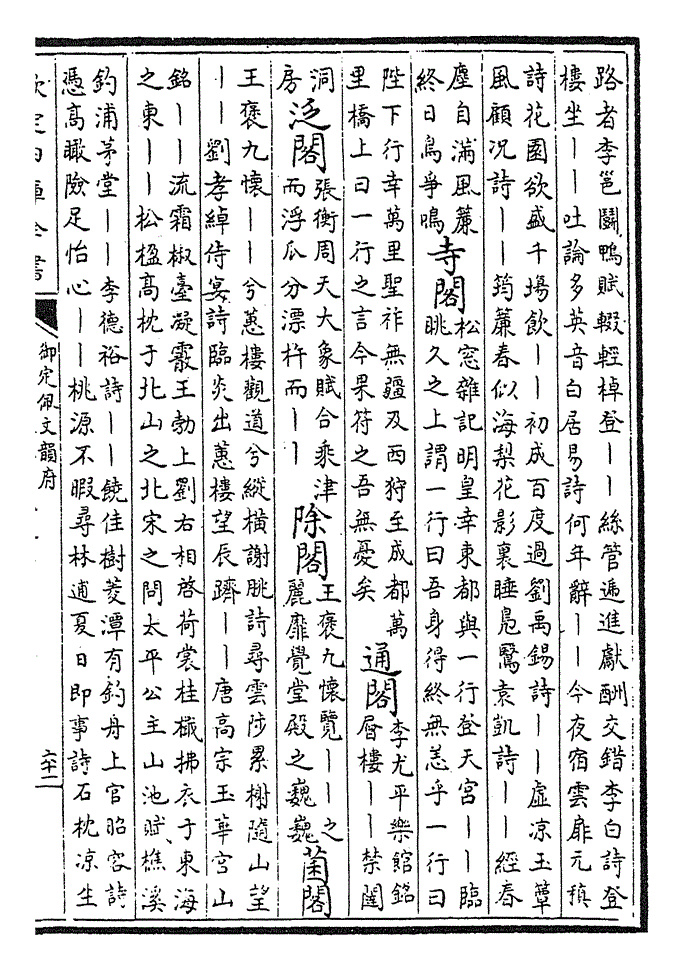 路者李邕鬭鴨賦輟輕棹登——絲管遞進獻酬交錯李白詩登
樓坐——吐論多英音白居易詩何年辭——今夜宿雲扉元稹
詩花園欲盛千塲飲——初成百度過劉禹錫詩——虛凉玉簟
風顧况詩——筠簾春似海梨花影裏睡鳧鷖袁凱詩——經春
塵自滿風簾
終日鳥爭鳴
寺閣
松窓雜記明皇幸東都與一行登天宮——臨
眺久之上謂一行曰吾身得終無恙乎一行曰
陛下行幸萬里聖祚無疆及西狩至成都萬
里橋上曰一行之言今果符之吾無憂矣
通閣
李尤平樂館銘
層樓——禁闥
洞
房
泛閣
張衡周天大象賦合乘津
而浮瓜分漂杵而——
除閣
王褒九懷覽——之
麗靡覺堂殿之巍巍
菌閣
王褒九懷——兮蕙樓觀道兮縱橫謝朓詩尋雲陟累榭隨山望
——劉孝綽侍宴詩臨炎出蕙樓望辰躋——唐高宗玉華宮山
銘——流霜椒臺凝霰王勃上劉右相啓荷裳桂檝拂衣于東海
之東——松楹高枕于北山之北宋之問太平公主山池賦樵溪
釣浦茅堂——李德裕詩——饒佳樹菱潭有釣舟上官昭容詩
憑高瞰險足怡心——桃源不暇尋林逋夏日即事詩石枕凉生
欽定四庫全書
御定佩文韻府
六十二